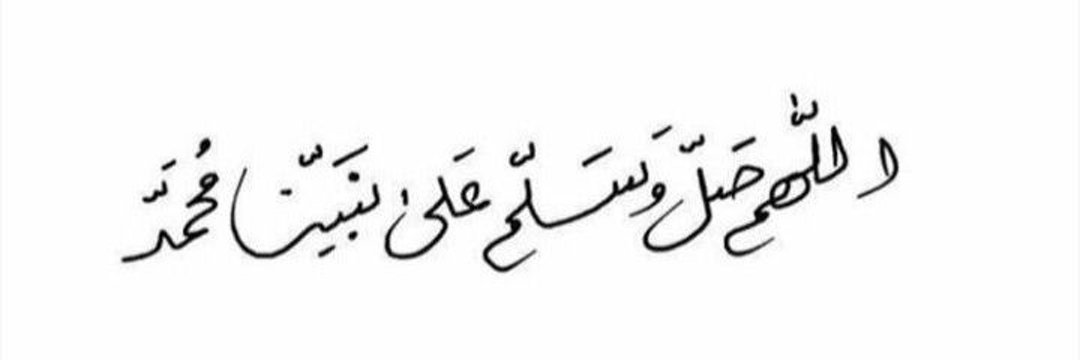 اللَّهم صَلِّ وَسَلِّم عَلىٰ نَبَيِّنا مُحمَدّ